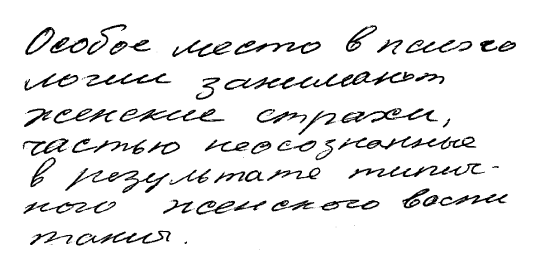 Особое место в психо
логии занимают
женские страхи,
частью неосознанные
в результате типич-
ного женского воспи
тания.